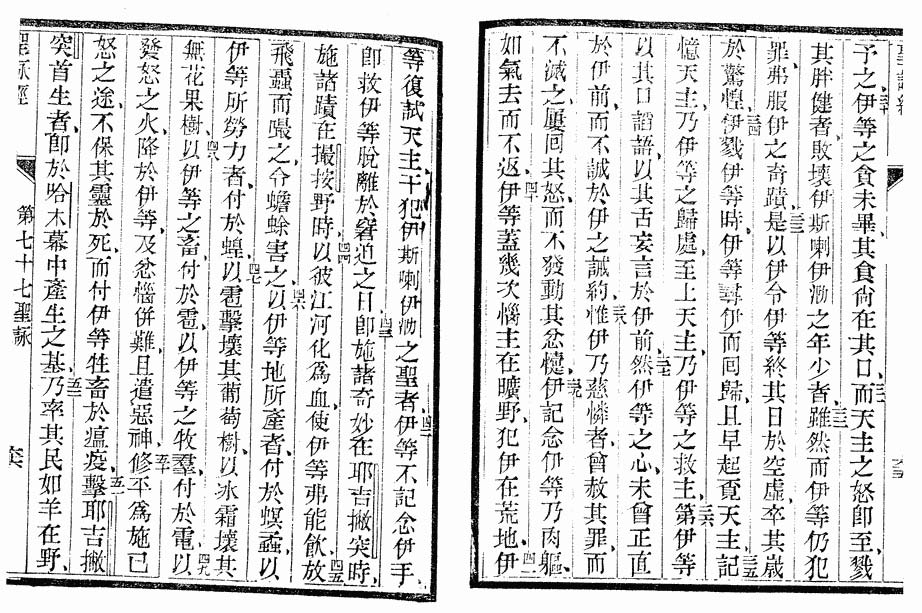 予之伊等之食未畢其食尚在其口三十一而天主之怒即至戮
其胖健者敗壞伊斯喇伊泐之年少者三十二雖然而伊等仍犯
罪弗服伊之奇蹟三十三是以伊令伊等終其日於空虛卒其歲
於驚惶三十四伊戮伊等時伊等尋伊而回歸且早起覔天主三十五記
憶天主乃伊等之歸處至上天主乃伊等之救主三十六第伊等
以其口謟語以其舌妄言於伊前三十七然伊等之心未曾正直
於伊前而不誠於伊之誠約三十八惟伊乃慈憐者曾赦其罪而
不滅之屢回其怒而不發動其忿懥三十九伊記念伊等乃肉軀
如氣去而不返四十伊等蓋幾次惱主在曠野犯伊在荒地四一伊
等復試天主干犯伊斯喇伊泐之聖者四二伊等不記念伊手
即救伊等脫離於窘迫之日四三即施諸奇妙在耶吉撇突時
施諸蹟在撮按野時四四以彼江河化爲血使伊等弗能飲四五放
飛蝨而嘬之令蟾蜍害之四六以伊等地所產者付於螟蟊以
伊等所勞力者付於蝗四七以雹擊壞其葡萄樹以冰霜壞其
無花果樹四八以伊等之畜付於雹以伊等之牧羣付於電四九以
發怒之火降於伊等及忿惱併難且遣惡神五十修平爲施己
怒之途不保其靈於死而付伊等牲畜於瘟疫五一擊耶吉撇
突首生者即於哈木幕中產生之基五二乃率其民如羊在野
聖詠經
第七十七聖詠